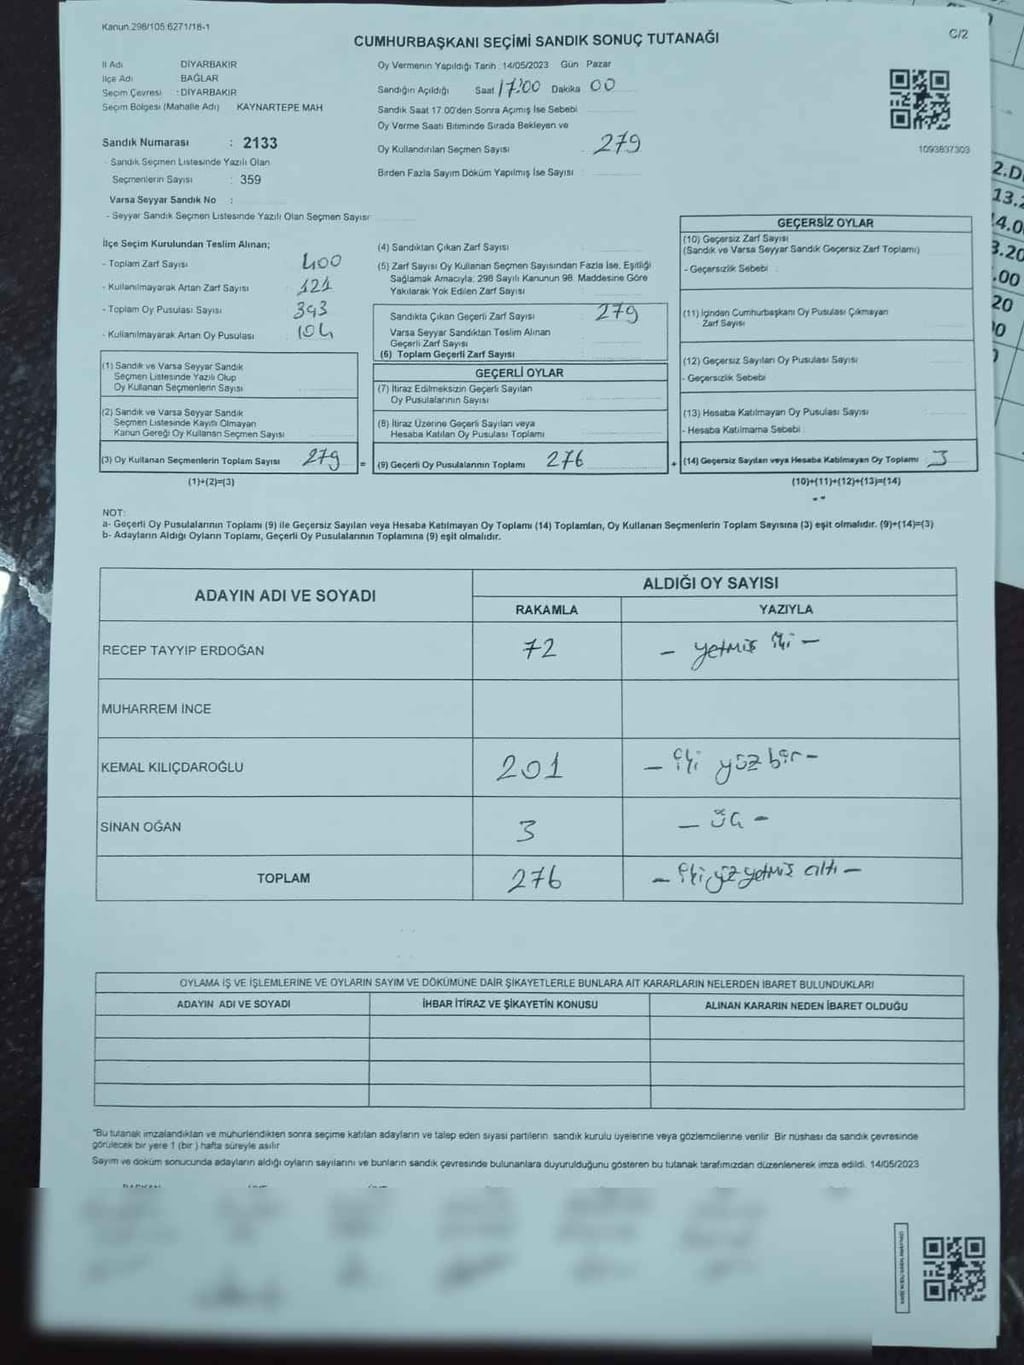 Kanun.298/105.6271/18-1
CUMHURBAŞKANI SEÇİMİ SANDIK SONUÇ TUTANAĞI
C/2
İl Adı DİYARBAKIR
İlçe Adı BAĞLAR
Seçim Çevresi : DİYARBAKIR
Seçim Bölgesi (Mahalle Adı) KAYNARTEPE MAH
Sandık Numarası : 2133
- Sandık Seçmen Listesinde Yazılı Olan
Seçmenlerin Sayısı : 359
Varsa Seyyar Sandık No :
- Seyyar Sandık Seçmen Listesinde Yazılı Olan Seçmen Sayısı
Oy Vermenin Yapıldığı Tarih : 14/05/2023 Gün Pazar
Sandığın Açıldığı Saat 17:00 Dakika 00
Sandık Saat 17.00'den Sonra Açımış İse Sebebi
Oy Verme Saati Bitiminde Sırada Bekleyen ve
Oy Kullandırılan Seçmen Sayısı 279
Birden Fazla Sayım Döküm Yapılmış İse Sayısı
1093837303
İlçe Seçim Kurulundan Teslim Alınan;
- Toplam Zarf Sayısı 400
- Kullanılmayarak Artan Zarf Sayısı 121
- Toplam Oy Pusulası Sayısı 383
- Kullanılmayarak Artan Oy Pusulası 104
(1) Sandık ve Varsa Seyyar Sandık
Seçmen Listesinde Yazılı Olup
Oy Kullanan Seçmenlerin Sayısı
(2) Sandık ve Varsa Seyyar Sandık
Seçmen Listesinde Kayıtlı Olmayan
Kanun Gereği Oy Kullanan Seçmen Sayısı
(3) Oy Kullanan Seçmenlerin Toplam Sayısı 279
(1)+(2)=(3)
(4) Sandıktan Çıkan Zarf Sayısı
(5) Zarf Sayısı Oy Kullanan Seçmen Sayısından Fazla İse, Eşitliği
Sağlamak Amacıyla; 298 Sayılı Kanunun 98. Maddesine Göre
Yakılarak Yok Edilen Zarf Sayısı
Sandıkta Çıkan Geçerli Zarf Sayısı 279
Varsa Seyyar Sandıktan Teslim Alınan
Geçerli Zarf Sayısı
(6) Toplam Geçerli Zarf Sayısı
GEÇERLİ OYLAR
(7) İtiraz Edilmeksizin Geçerli Sayılan
Oy Pusulalarının Sayısı
(8) İtiraz Üzerine Geçerli Sayılan veya
Hesaba Katılan Oy Pusulası Toplamı
= (9) Geçerli Oy Pusulalarının Toplamı 276
GEÇERSİZ OYLAR
(10) Geçersiz Zarf Sayısı
(Sandık ve Varsa Seyyar Sandık Geçersiz Zarf Toplamı)
- Geçersizlik Sebebi
(11) İçinden Cumhurbaşkanı Oy Pusulası Çıkmayan
Zarf Sayısı
(12) Geçersiz Sayılan Oy Pusulası Sayısı
- Geçersizlik Sebebi
(13) Hesaba Katılmayan Oy Pusulası Sayısı
- Hesaba Katılmama Sebebi
+ (14) Geçersiz Sayılan veya Hesaba Katılmayan Oy Toplamı 3
(10)+(11)+(12)+(13)=(14)
NOT:
a- Geçerli Oy Pusulalarının Toplamı (9) ile Geçersiz Sayılan veya Hesaba Katılmayan Oy Toplamı (14) Toplamları, Oy Kullanan Seçmenlerin Toplam Sayısına (3) eşit olmalıdır. (9)+(14)=(3)
b- Adayların Aldığı Oyların Toplamı, Geçerli Oy Pusulalarının Toplamına (9) eşit olmalıdır.
ADAYIN ADI VE SOYADI
ALDIĞI OY SAYISI
RAKAMLA YAZIYLA
RECEP TAYYIP ERDOĞAN 72 - yetmiş iki -
MUHARREM İNCE
KEMAL KILIÇDAROĞLU 201 - iki yüz bir -
SİNAN OĞAN 3 - üç -
TOPLAM 276 - iki yüz yetmiş altı -
OYLAMA İŞ VE İŞLEMLERİNE VE OYLARIN SAYIM VE DÖKÜMÜNE DAİR ŞİKAYETLERLE BUNLARA AİT KARARLARIN NELERDEN İBARET BULUNDUKLARI
ADAYIN ADI VE SOYADI İHBAR İTİRAZ VE ŞİKAYETİN KONUSU ALINAN KARARIN NEDEN İBARET OLDUĞU
"Bu tutanak imzalandıktan ve mühürlendikten sonra seçime katılan adayların ve talep eden siyasi partilerin sandık kurulu üyelerine veya gözlemcilerine verilir. Bir nüshası da sandık çevresinde
görülecek bir yere 1 (bir) hafta süreyle asılır
Sayım ve döküm sonucunda adayların aldığı oyların sayılarını ve bunların sandık çevresinde bulunanlara duyurulduğunu gösteren bu tutanak tarafımızdan düzenlenerek imza edildi. 14/05/2023